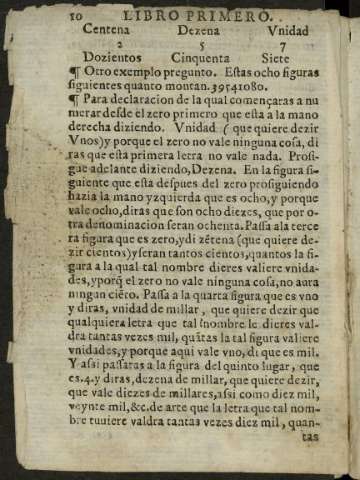 10 LIBRO PRIMERO.
Centena Dezena Vnidad
2 5 7
Dozientos Cinquenta Siete
¶ Otro exemplo pregunto. Estas ocho figuras
siguientes quanto montan. 39541080.
¶ Para declaracion de la qual començaras a nu
merar desde el zero primero que esta a la mano
derecha diziendo. Vnidad (que quiere dezir
Vnos) y porque el zero no vale ninguna cosa, di
ras que esta primera letra no vale nada. Prosi-
gue adelante diziendo, Dezena. En la figura si-
guiente que esta despues del zero prosiguiendo
hazia la mano yzquierda que es ocho, y porque
vale ocho, diras que son ocho diezes, que por o-
tra denominacion seran ochenta. Passa ala terce
ra figura que es zero, y di zẽtena (que quiere de-
zir cientos) y seran tantos cientos, quantos la fi-
gura a la qual tal nombre dieres valiere vnida-
des, y porq̃ el zero no vale ninguna cosa, no aura
ningun ciẽto. Passa a la quarta figura que es vno
y diras, vnidad de millar, que quiere dezir que
qualquiera letra que tal nombre le dieres val-
dra tantas vezes mil, quãtas la tal figura valiere
vnidades, y porque aqui vale vno, di que es mil.
Y assi passaras a la figura del quinto lugar, que
es .4. y diras, dezena de millar, que quiere dezir,
que vale diezes de millares, assi como diez mil,
veynte mil, &c. de arte que la letra que tal nom-
bre tuuiere valdra tantas vezes diez mil, quan-
tas